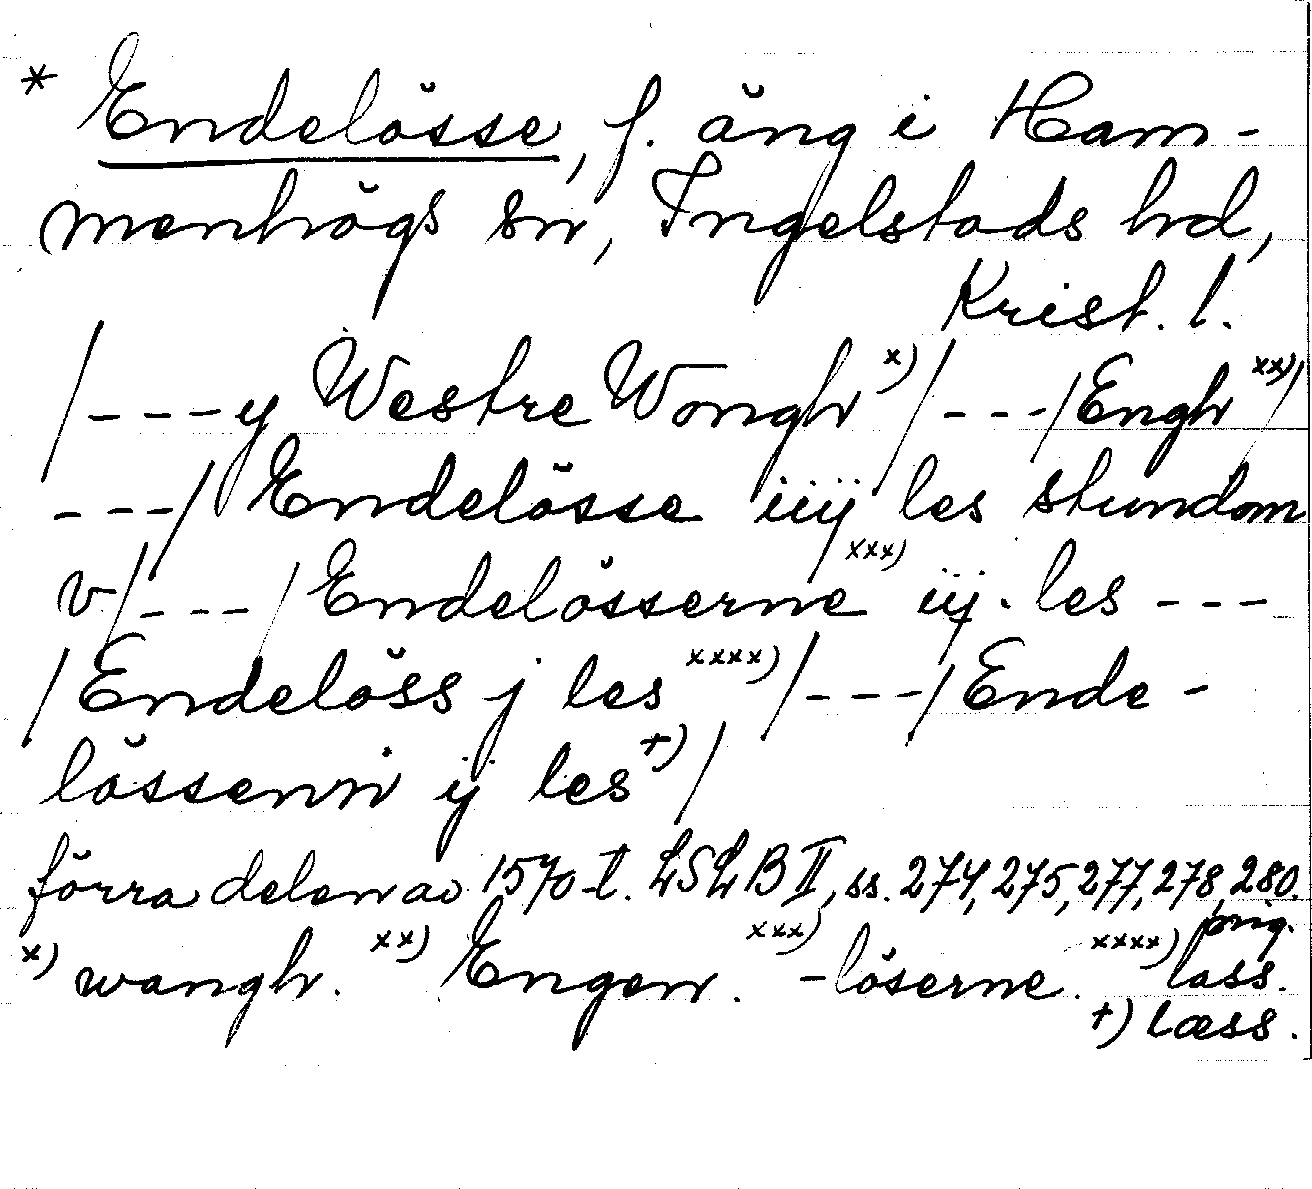 * Endelösse, f. äng i Ham-
menhögs sn, Ingelstads hd,
Krist. l.
/---y Westre Wongh x)/---/Engh xx)/
---/ Endelösse iiij les stundom
v/---/ Endelösserne xxx) iij. les ---
/Endelöss j les xxxx)/---/Ende-
lössenn ij les +)/
förra delen av 1570-t. LSLB II, ss. 274, 275, 277, 278, 280.
orig.
x) wangh. xx) Engen. xxx) -löserne. xxxx) lass.
+) læss.